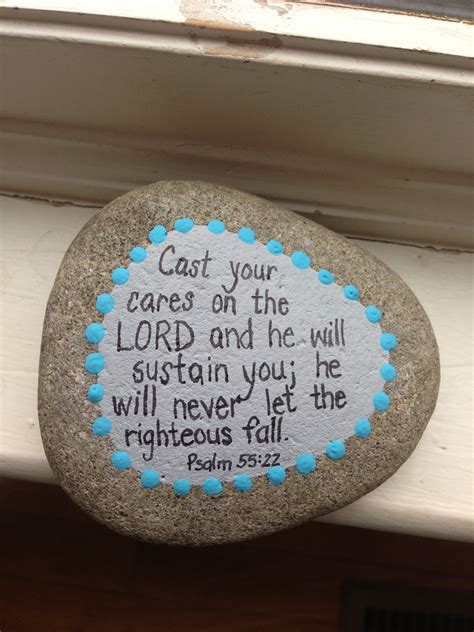 Cast your
cares on the
LORD and he will
sustain you; he
will never let the
righteous fall.
Psalm 55:22